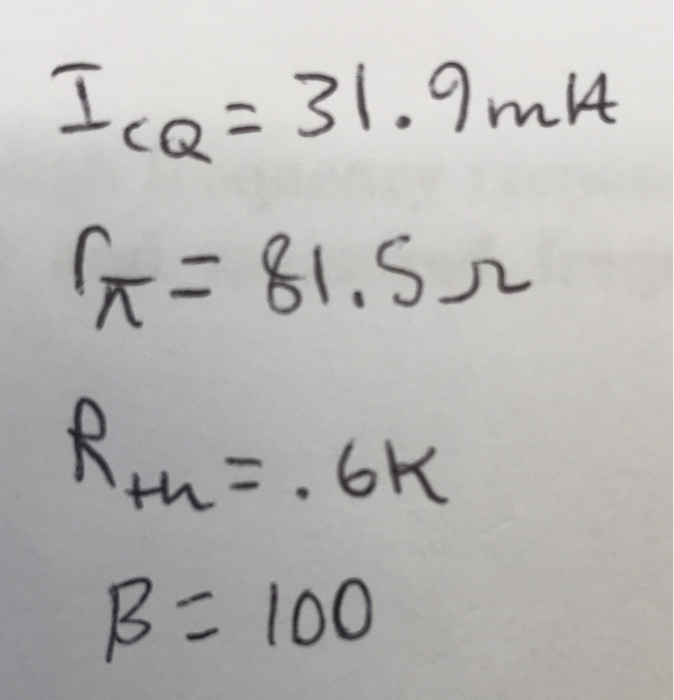 I_CQ = 31.9mA
r_π = 81.5Ω
R_th = .6K
β = 100